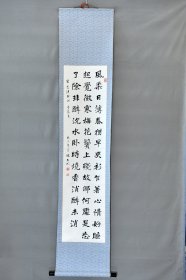 風柔日薄春猶早夾衫乍著心情好睡
起覺微寒梅花鬢上殘故鄉何處是忘
了除非醉沈水卧時燒香消酒未消